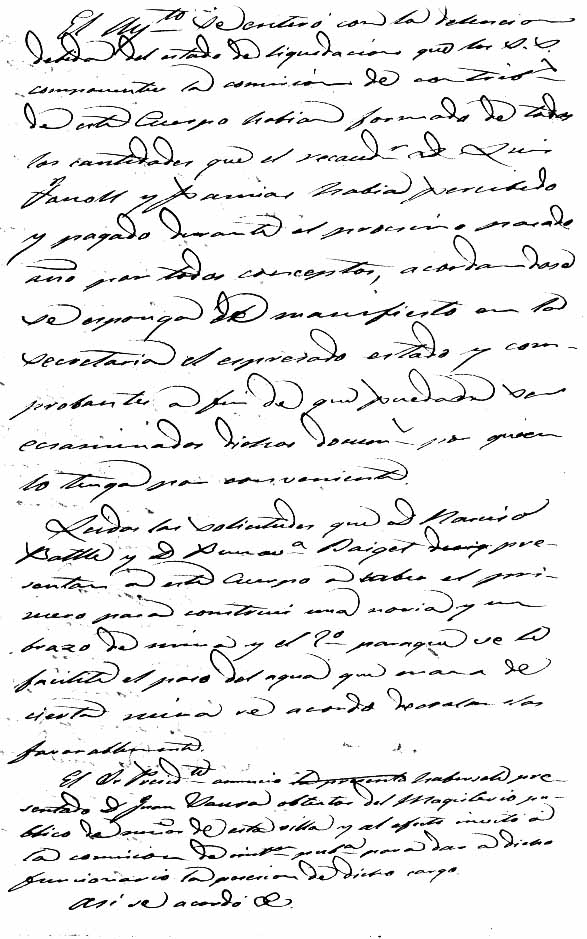 El Ayto se enteró con la detencion
debida del estado de liquidacion que los S.S.
componentes la comision de
de este Cuerpo habian formado de todas
las cantidades que el recaudr D. Luis
y habia percibido
y pagado durante el procsimo pasado
año por todos conceptos, acordandose
se esponga de manifiesto en la
secretaria el espresado estado y com-
probantes a fin de que puedan ser
ecsaminados dichos docum por quien
lo tenga por conveniente.
Leidas las solicitudes que D. Narciso
Batlle y D. Buenava Baiget pre-
sentan a este Cuerpo a saber el pri-
mero para construir una noria y un
brazo de mina y el 2o paraque se le
facilite el paso del agua que mana de
cierta mina se acordó decretarlas
favorablemente.
El Sr Presidte anunció haberse pre-
sentado D. Juan obtentor del Magisterio pu-
blico de niños de esta villa y al efecto invitó a
la comision de intn puba para dar a dicho
funcionario la posesion de dicho cargo.
Asi se acordó